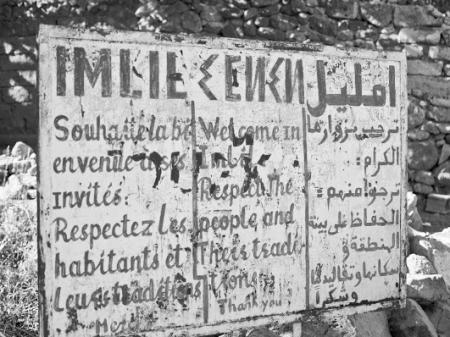 IMLIL ⵉⵎⵍⵉⵍ امليل
Souhaite la bi
envenue à ses
invités:
Respectez les
habitants et
leurs traditions
Merci
Welcome in
Imlil
Respect The
people and
Their tradi
tions
Thank you
ترحب بزوارها
الكرام:
نرجوا منهم:
الحفاظ على بيئة
المنطقة و
سكانها وتقاليدها
وشكرا